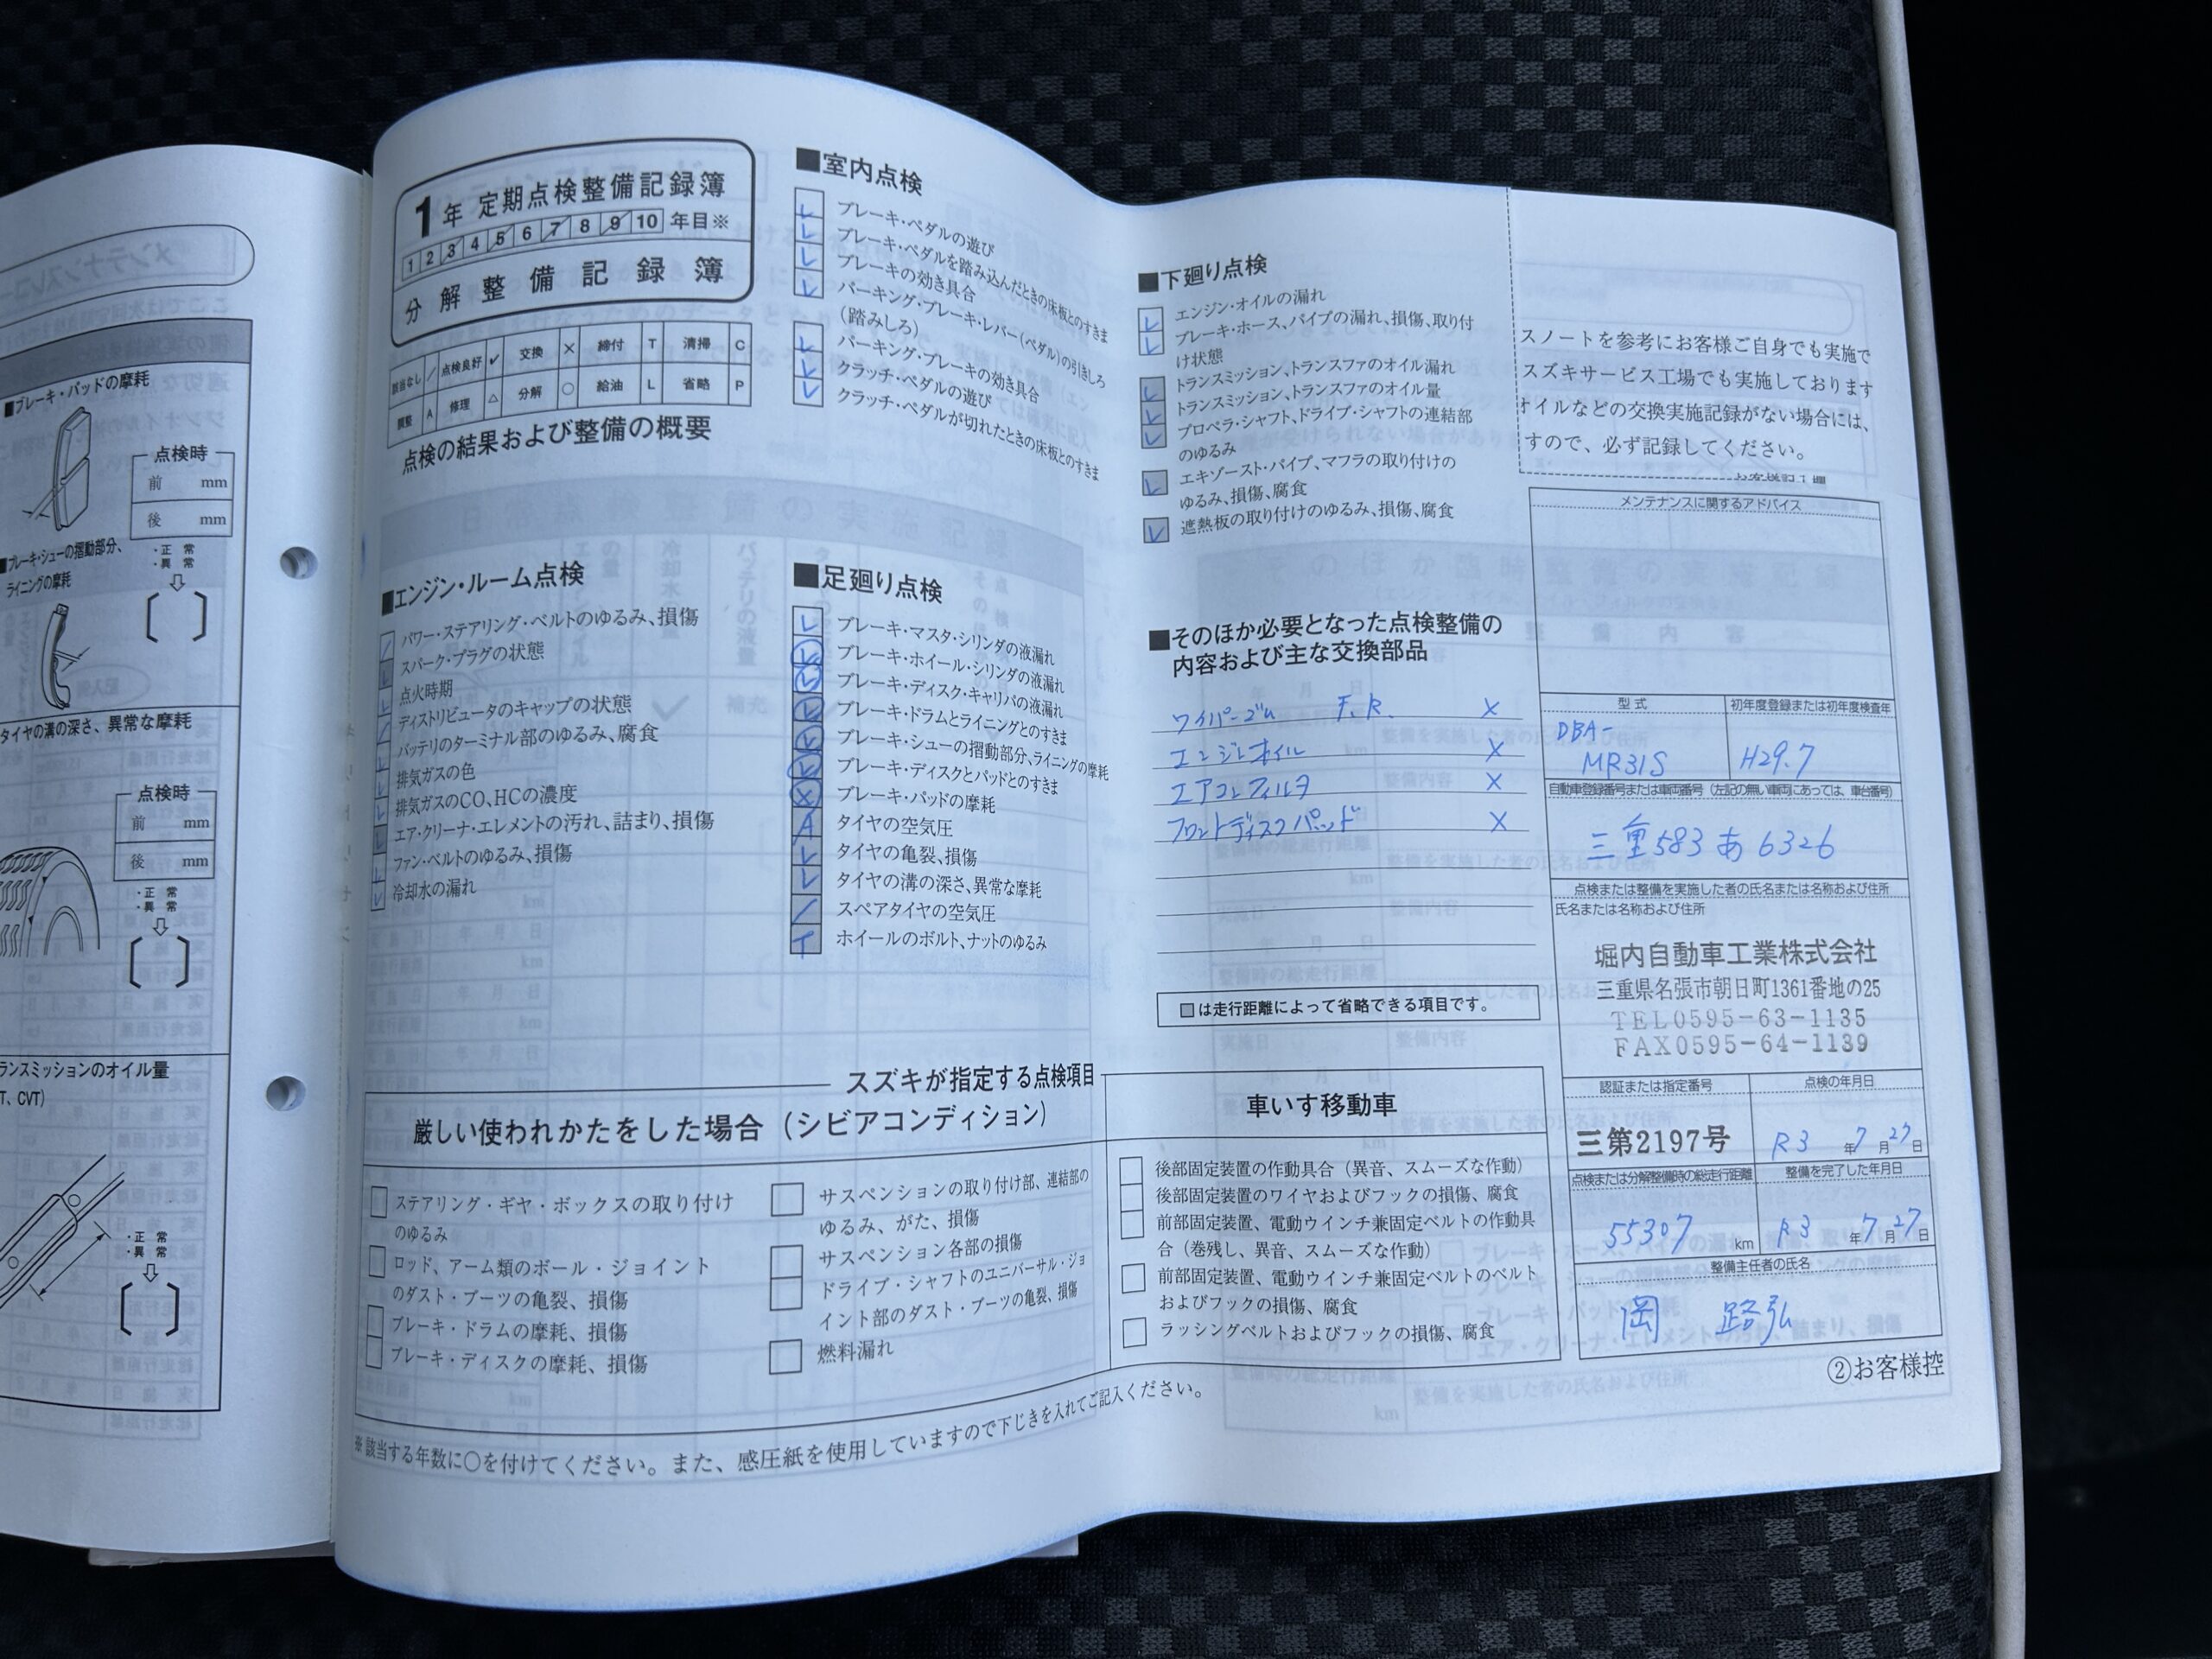 ■ブレーキ・パッドの摩耗
点検時
前 mm
後 mm
■ブレーキ・シューの摺動部分、
ライニングの摩耗
・正 常
・異 常
タイヤの溝の深さ、異常な摩耗
点検時
前 mm
後 mm
・正 常
・異 常
ランスミッションのオイル量
T、CVT)
・正 常
・異 常
1年 定期点検整備記録簿
1 2 3 4 5 6 7 8 9 10 年目※
分解整備記録簿
該当なし / 点検良好 ✓ 交換 × 締付 T 清掃 C
調整 A 修理 △ 分解 ○ 給油 L 省略 P
点検の結果および整備の概要
■エンジン・ルーム点検
パワー・ステアリング・ベルトのゆるみ、損傷
スパーク・プラグの状態
点火時期
ディストリビュータのキャップの状態
バッテリのターミナル部のゆるみ、腐食
排気ガスの色
排気ガスのCO、HCの濃度
エア・クリーナ・エレメントの汚れ、詰まり、損傷
ファン・ベルトのゆるみ、損傷
冷却水の漏れ
■室内点検
ブレーキ・ペダルの遊び
ブレーキ・ペダルを踏み込んだときの床板とのすきま
ブレーキの効き具合
パーキング・ブレーキ・レバー(ペダル)の引きしろ
(踏みしろ)
パーキング・ブレーキの効き具合
クラッチ・ペダルの遊び
クラッチ・ペダルが切れたときの床板とのすきま
■足廻り点検
ブレーキ・マスタ・シリンダの液漏れ
ブレーキ・ホイール・シリンダの液漏れ
ブレーキ・ディスク・キャリパの液漏れ
ブレーキ・ドラムとライニングとのすきま
ブレーキ・シューの摺動部分、ライニングの摩耗
ブレーキ・ディスクとパッドとのすきま
× ブレーキ・パッドの摩耗
A タイヤの空気圧
タイヤの亀裂、損傷
タイヤの溝の深さ、異常な摩耗
/ スペアタイヤの空気圧
T ホイールのボルト、ナットのゆるみ
■下廻り点検
エンジン・オイルの漏れ
ブレーキ・ホース、パイプの漏れ、損傷、取り付
け状態
トランスミッション、トランスファのオイル漏れ
トランスミッション、トランスファのオイル量
プロペラ・シャフト、ドライブ・シャフトの連結部
のゆるみ
エキゾースト・パイプ、マフラの取り付けの
ゆるみ、損傷、腐食
遮熱板の取り付けのゆるみ、損傷、腐食
■そのほか必要となった点検整備の
内容および主な交換部品
ワイパーゴム F.R. ×
エンジンオイル ×
エアコンフィルタ ×
フロントディスクパッド ×
■は走行距離によって省略できる項目です。
スノートを参考にお客様ご自身でも実施で
スズキサービス工場でも実施しております
オイルなどの交換実施記録がない場合には、
すので、必ず記録してください。
お客様記入欄
メンテナンスに関するアドバイス
型式 初年度登録または初年度検査年
DBA-
MR31S H29.7
自動車登録番号または車両番号(左記の無い車両にあっては、車台番号)
三重583あ6326
点検または整備を実施した者の氏名または名称および住所
氏名または名称および住所
堀内自動車工業株式会社
三重県名張市朝日町1361番地の25
TEL0595-63-1135
FAX0595-64-1139
認証または指定番号 点検の年月日
三第2197号 R3年7月27日
点検または分解整備時の総走行距離 整備を完了した年月日
55307km R3年7月27日
整備主任者の氏名
岡 路弘
②お客様控
スズキが指定する点検項目
厳しい使われかたをした場合(シビアコンディション)
ステアリング・ギヤ・ボックスの取り付け
のゆるみ
ロッド、アーム類のボール・ジョイント
のダスト・ブーツの亀裂、損傷
ブレーキ・ドラムの摩耗、損傷
ブレーキ・ディスクの摩耗、損傷
サスペンションの取り付け部、連結部の
ゆるみ、がた、損傷
サスペンション各部の損傷
ドライブ・シャフトのユニバーサル・ジョ
イント部のダスト・ブーツの亀裂、損傷
燃料漏れ
車いす移動車
後部固定装置の作動具合(異音、スムーズな作動)
後部固定装置のワイヤおよびフックの損傷、腐食
前部固定装置、電動ウインチ兼固定ベルトの作動具
合(巻残し、異音、スムーズな作動)
前部固定装置、電動ウインチ兼固定ベルトのベルト
およびフックの損傷、腐食
ラッシングベルトおよびフックの損傷、腐食
※該当する年数に○を付けてください。また、感圧紙を使用していますので下じきを入れてご記入ください。